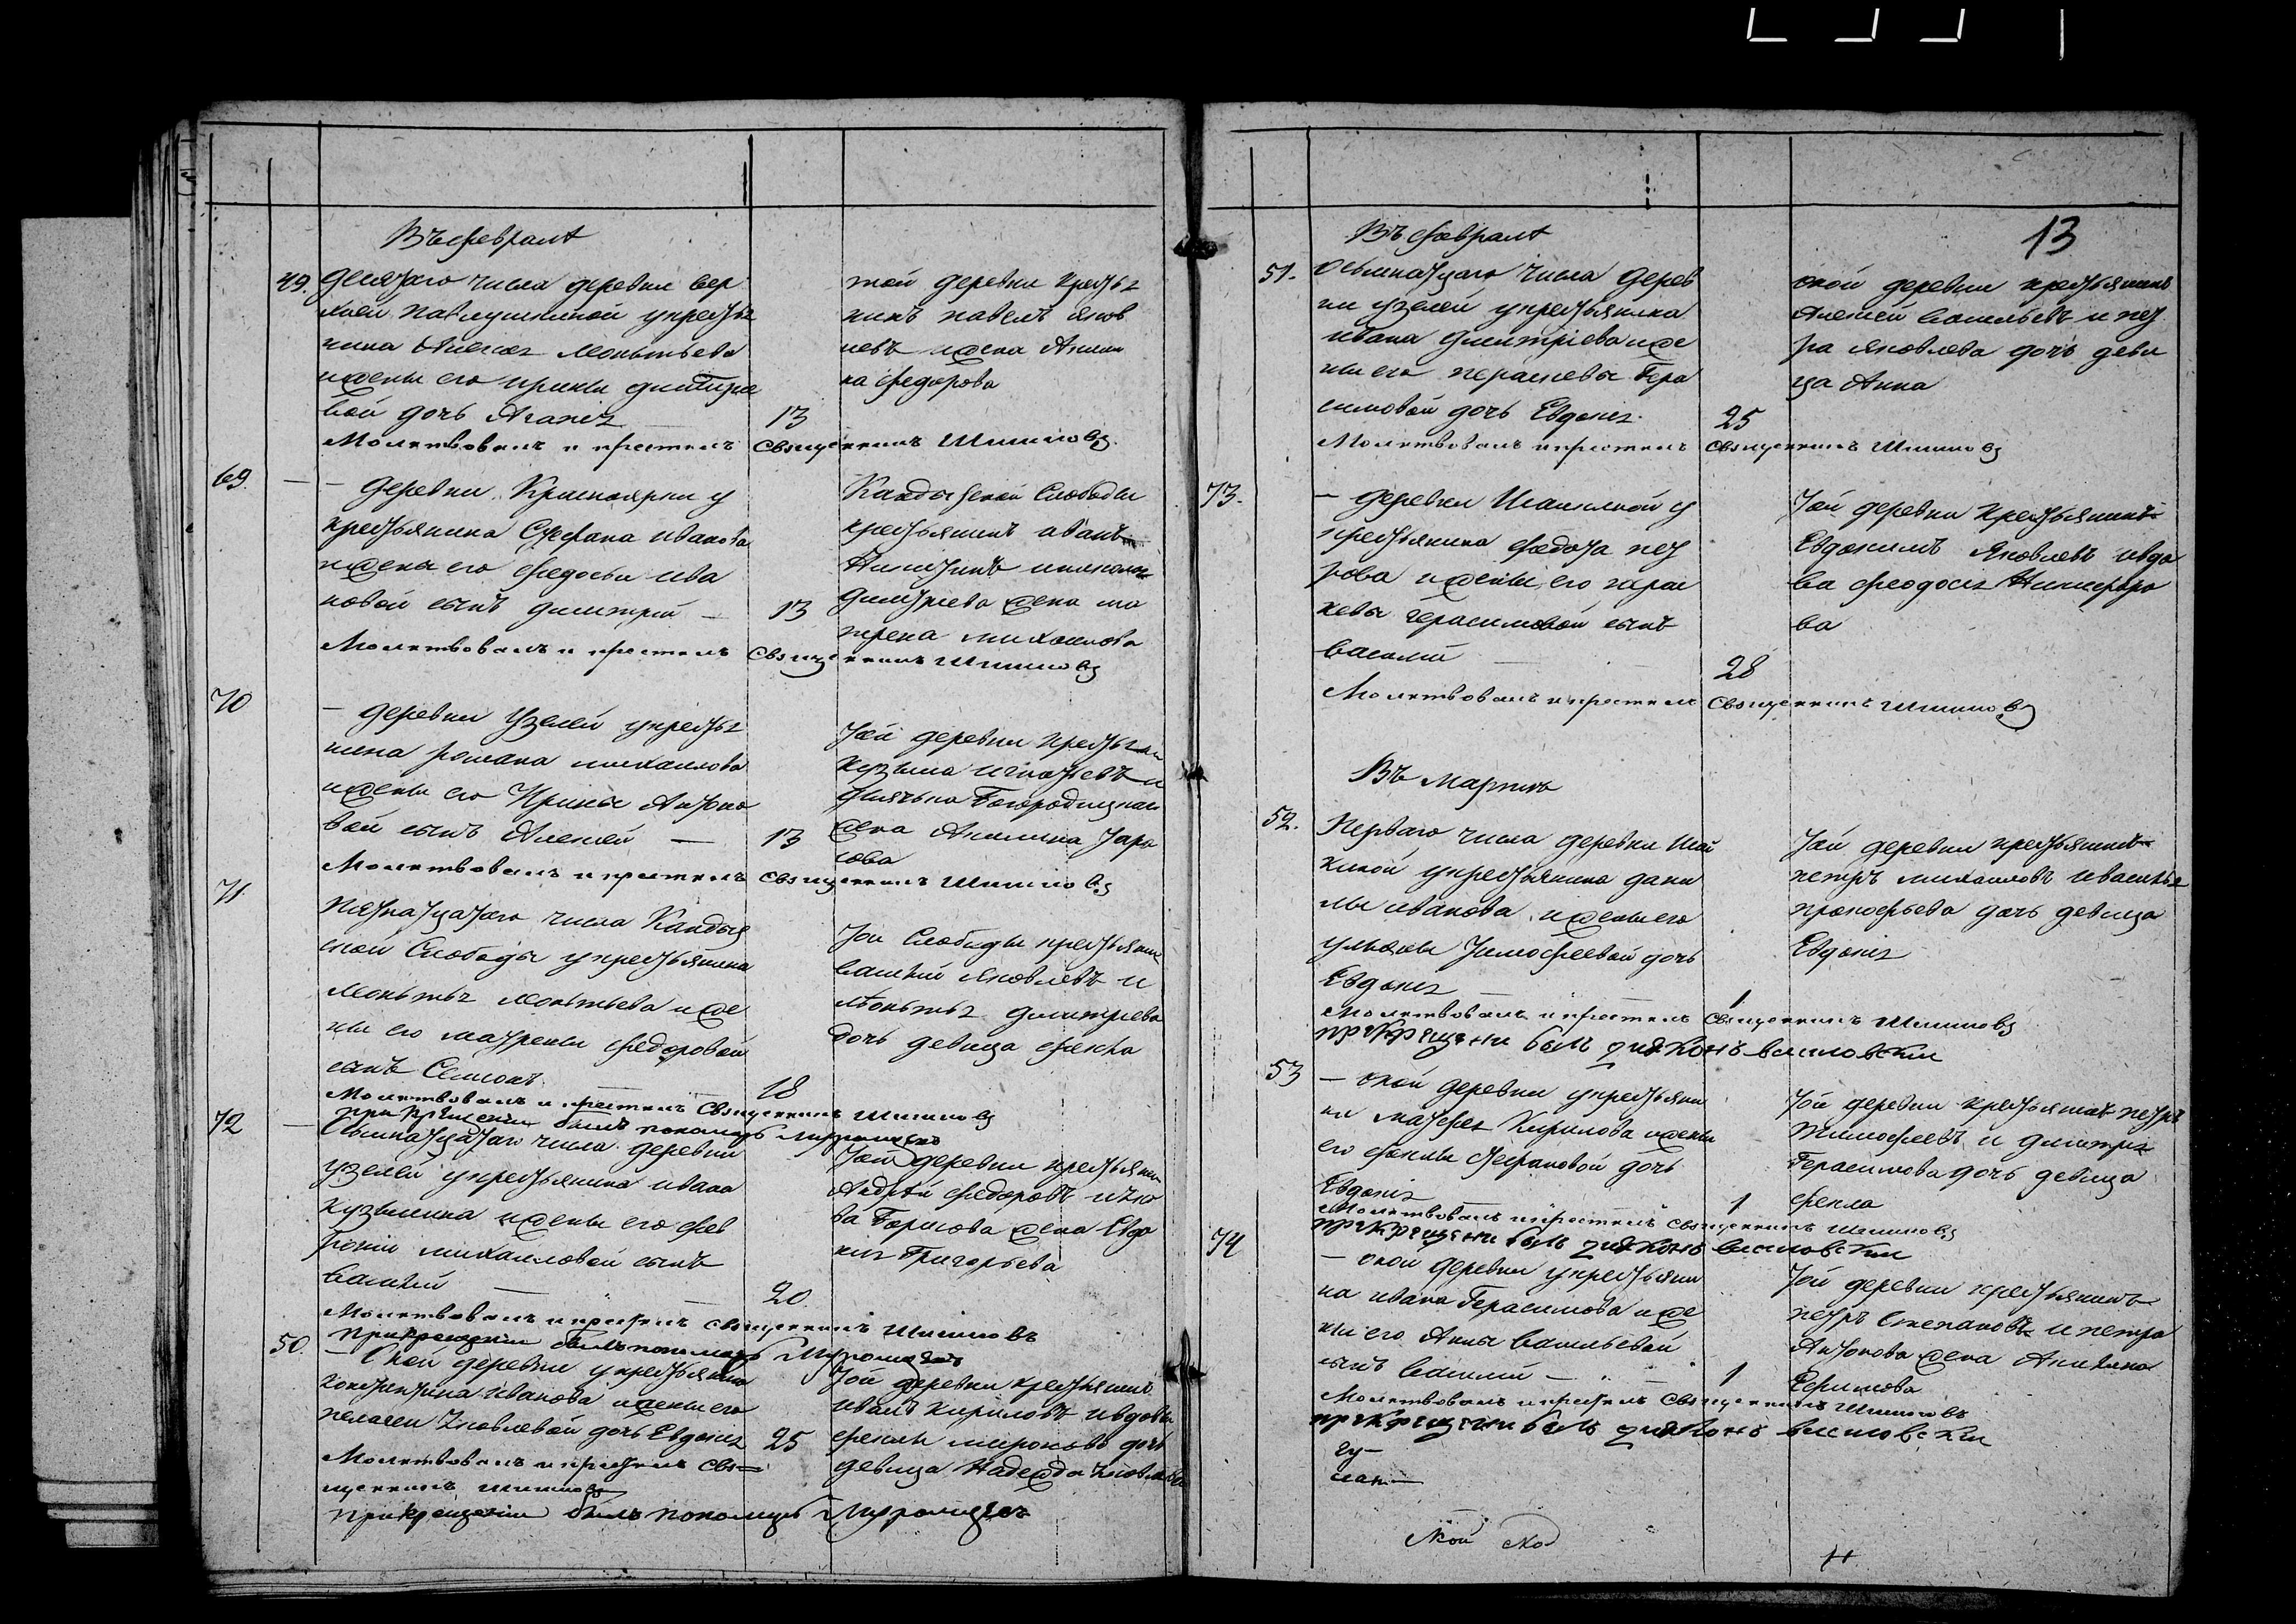 Въ феврале
49. Десятаго числа деревни Вер
хней Павлушкиной у крестья
нина Алексея Леонтьева
и жены его Ирины Дмитрие
вой дочь Агапия 13
той деревни крестья
нинъ Павелъ Яков
левъ жена Акили
на Федорова
Молитвовалъ и крестилъ Священникъ Шишковъ
69. — деревни Красноярки у
крестьянина Стефана Иванова
и жены его Федосьи Ива
новой сынъ Димитрий — 13
Кандызской Слободы
крестьянинъ Иванъ
Димитриева жена Ма
трена Михайлова
Молитвовалъ и крестилъ Священникъ Шишковъ
70 — деревни Узелей у крестья
нина Романа Михайлова
и жены его Ирины Антоно
вой сынъ Алексей — 13
Той деревни крестьянин
Кузьма Игнатьевъ и
Богородицкаго
жена Акилина Тара
сова
Молитвовалъ и крестилъ Священникъ Шишковъ
71 Пятнатцатаго числа Кандыз
ской Слободы у крестьянина
Леонтья Леонтьева и же
ны его Матрены Федоровой
сынъ Семионъ 18
Той Слободы крестьянинъ
Василий Яковлевъ и
Леонтья Дмитриева
дочь девица Фекла
Молитвовалъ и крестилъ Священникъ Шишковъ
при крещении былъ пономарь
72 — Осьмнатцатаго числа деревни
Узелей у крестьянина Ивана
Кузьмина и жены его Фев
ронии Михайловой сынъ
Василий — 20
Той деревни крестьянинъ
Андрей Федоровъ и
ва Борисова жена Евдо
кия Григорьева
Молитвовалъ и крестилъ священникъ Шишковъ
При крещении былъ пономарь
50. — Оной деревни у крестьянина
Констянтина Иванова и жены его
Пелагеи Яковлевой дочь Евдокия 25
Той деревни крестьянинъ
Иванъ Кириловъ и вдовы
Феклы Мироновой дочь
девица Надежда Яковлева
Молитвовалъ и крестилъ Свя=
щенникъ Шишковъ
при крещении былъ пономарь
13
Въ феврале
51. Осьмнатцаго числа дерев
ни Узелей у крестьянина
Ивана Дмитриева и же
ны его Парасковьи Гера
симовой дочь Евдокия 25
оной деревни крестьянинъ
Алексей Васильевъ и Пет
ра Яковлева дочь деви
ца Анна
Молитвовалъ и крестилъ Священникъ Шишковъ
73. — деревни Шалкиной у
крестьянина Федота Пет
рова и жены его Парас
ковьи Герасимовой сынъ
Василий — 28
Той деревни крестьянинъ
Евдокимъ Яковлевъ и вдо
ва Феодосья Никифоро
ва
Молитвовалъ и крестилъ Священникъ Шишковъ
Въ Марте
52. Перваго числа деревни Шал
киной у крестьянина Дани
лы Иванова и жены его
Ульяны Тимофеевой дочь
Евдокия — 1
Той деревни крестьянинъ
Петръ Михайловъ и Василья
Прокофьева дочь девица
Евдокия
Молитвовалъ и крестилъ Священникъ Шишковъ
при крещении былъ диаконъ
53 — оной деревни у крестьяни
на Матфея Кирилова и жены
его Феклы Стефановой дочь
Евдокия 1
Той деревни крестьянинъ Петръ
Тимофеевъ и Дмитрия
Герасимова дочь девица
Фекла
Молитвовалъ и крестилъ Священникъ Шишковъ
при крещении былъ диаконъ
74 — оной деревни у крестьяни
на Ивана Герасимова и же
ны его Анны Васильевой
сынъ Василий — 1
Той деревни крестьянинъ
Петръ Степановъ и Петра
Антонова жена Акилина
Ефимова
Молитвовалъ и крестилъ Священникъ Шишковъ
при крещении былъ диаконъ